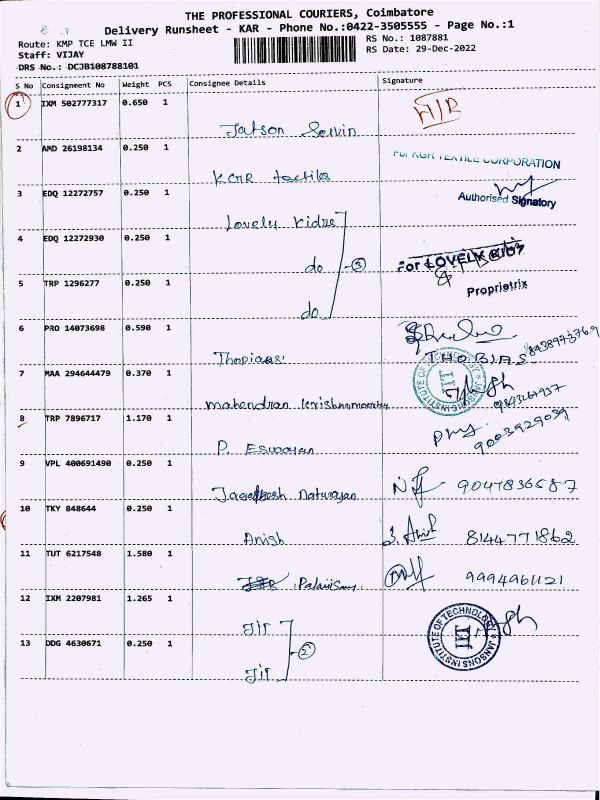 THE PROFESSIONAL COURIERS, Coimbatore
Delivery Runsheet - KAR - Phone No.:0422-3505555 - Page No.:1
Route: KMP TCE LMW II
RS No.: 1087881
Staff: VIJAY
RS Date: 29-Dec-2022
DRS No.: DCJB108788101
S No Consignment No Weight PCS Consignee Details Signature
1 IXM 502777317 0.650 1
2 AMD 26198134 0.250 1
KGR textiles
For KGR TEXTILE CORPORATION
3 EDQ 12272757 0.250 1
Lovely Kidss
Authorised Signatory
4 EDQ 12272930 0.250 1
do 3
For LOVELY KIDS
5 TRP 1296277 0.250 1
do
Proprietrix
6 PRO 14073698 0.590 1
Thopiaas
THOBIAS 8438973769
7 MAA 294644479 0.370 1
mahendran krishnamoorthy
JANSONS INSTITUTE OF TECHNOLOGY
9843161937
8 TRP 7896717 1.170 1
P. Eswaran
9003929039
9 VPL 400691490 0.250 1
Natarajan
9047836587
10 TKY 848644 0.250 1
Anish
8144771862
11 TUT 6217548 1.580 1
Palanisamy
9994961121
12 IXM 2207981 1.265 1
JIT
JANSONS INSTITUTE OF TECHNOLOGY
13 DDG 4630671 0.250 1
2
JIT